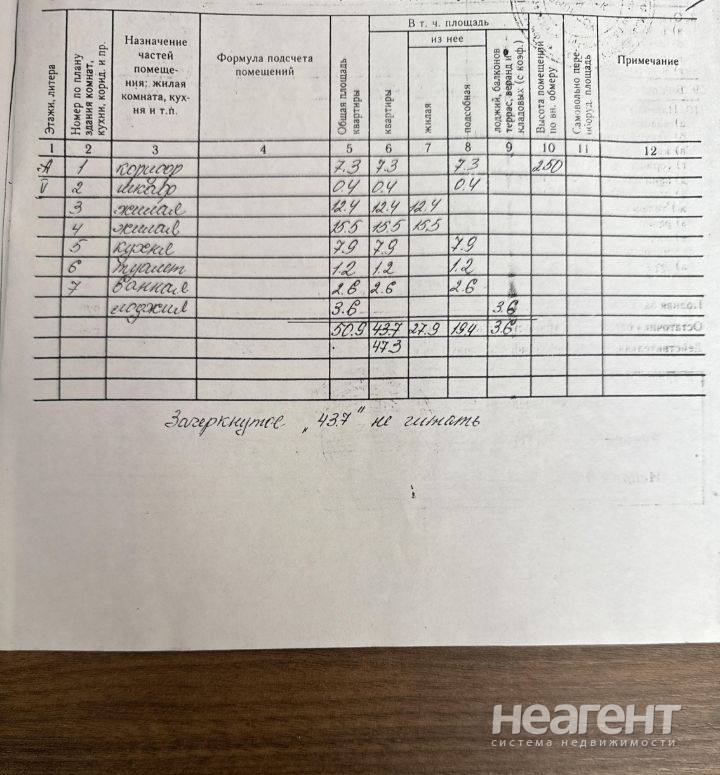 В т. ч. площадь
из нее
Этажи, литера
Номер по плану здания комнат, кухни, корид. и пр.
Назначение частей помещения: жилая комната, кухня и т.п.
Формула подсчета помещений
Общая площадь квартиры
квартиры
жилая
подсобная
лоджий, балконов террас, веранд и кладовых (с коэф.)
Высота помещений по вн. обмеру
Самовольно переоборуд. площадь
Примечание
1 2 3 4 5 6 7 8 9 10 11 12
А 1 коридор 7.3 7.3 7.3 250
V 2 шкаф 0.4 0.4 0.4
3 жилая 12.4 12.4 12.4
4 жилая 15.5 15.5 15.5
5 кухня 7.9 7.9 7.9
6 туалет 1.2 1.2 1.2
7 ванная 2.6 2.6 2.6
лоджия 3.6 3.6
50.9 43.7 27.9 19.4 3.6
47.3
Зачеркнутое „43.7" не читать
неагент
система недвижимости